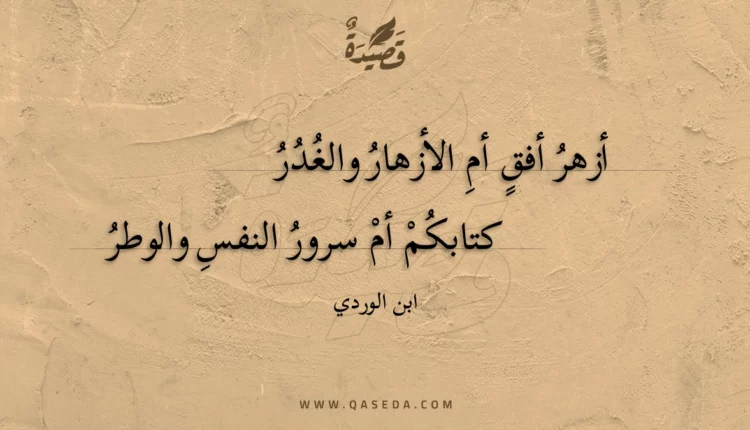 قَصِيْدَةٌ
أزهرُ أفقٍ أمِ الأزهارُ والغُدُرُ
كتابكُمْ أمْ سرورُ النفسِ والوطرُ
ابن الوردي
WWW.QASEDA.COM